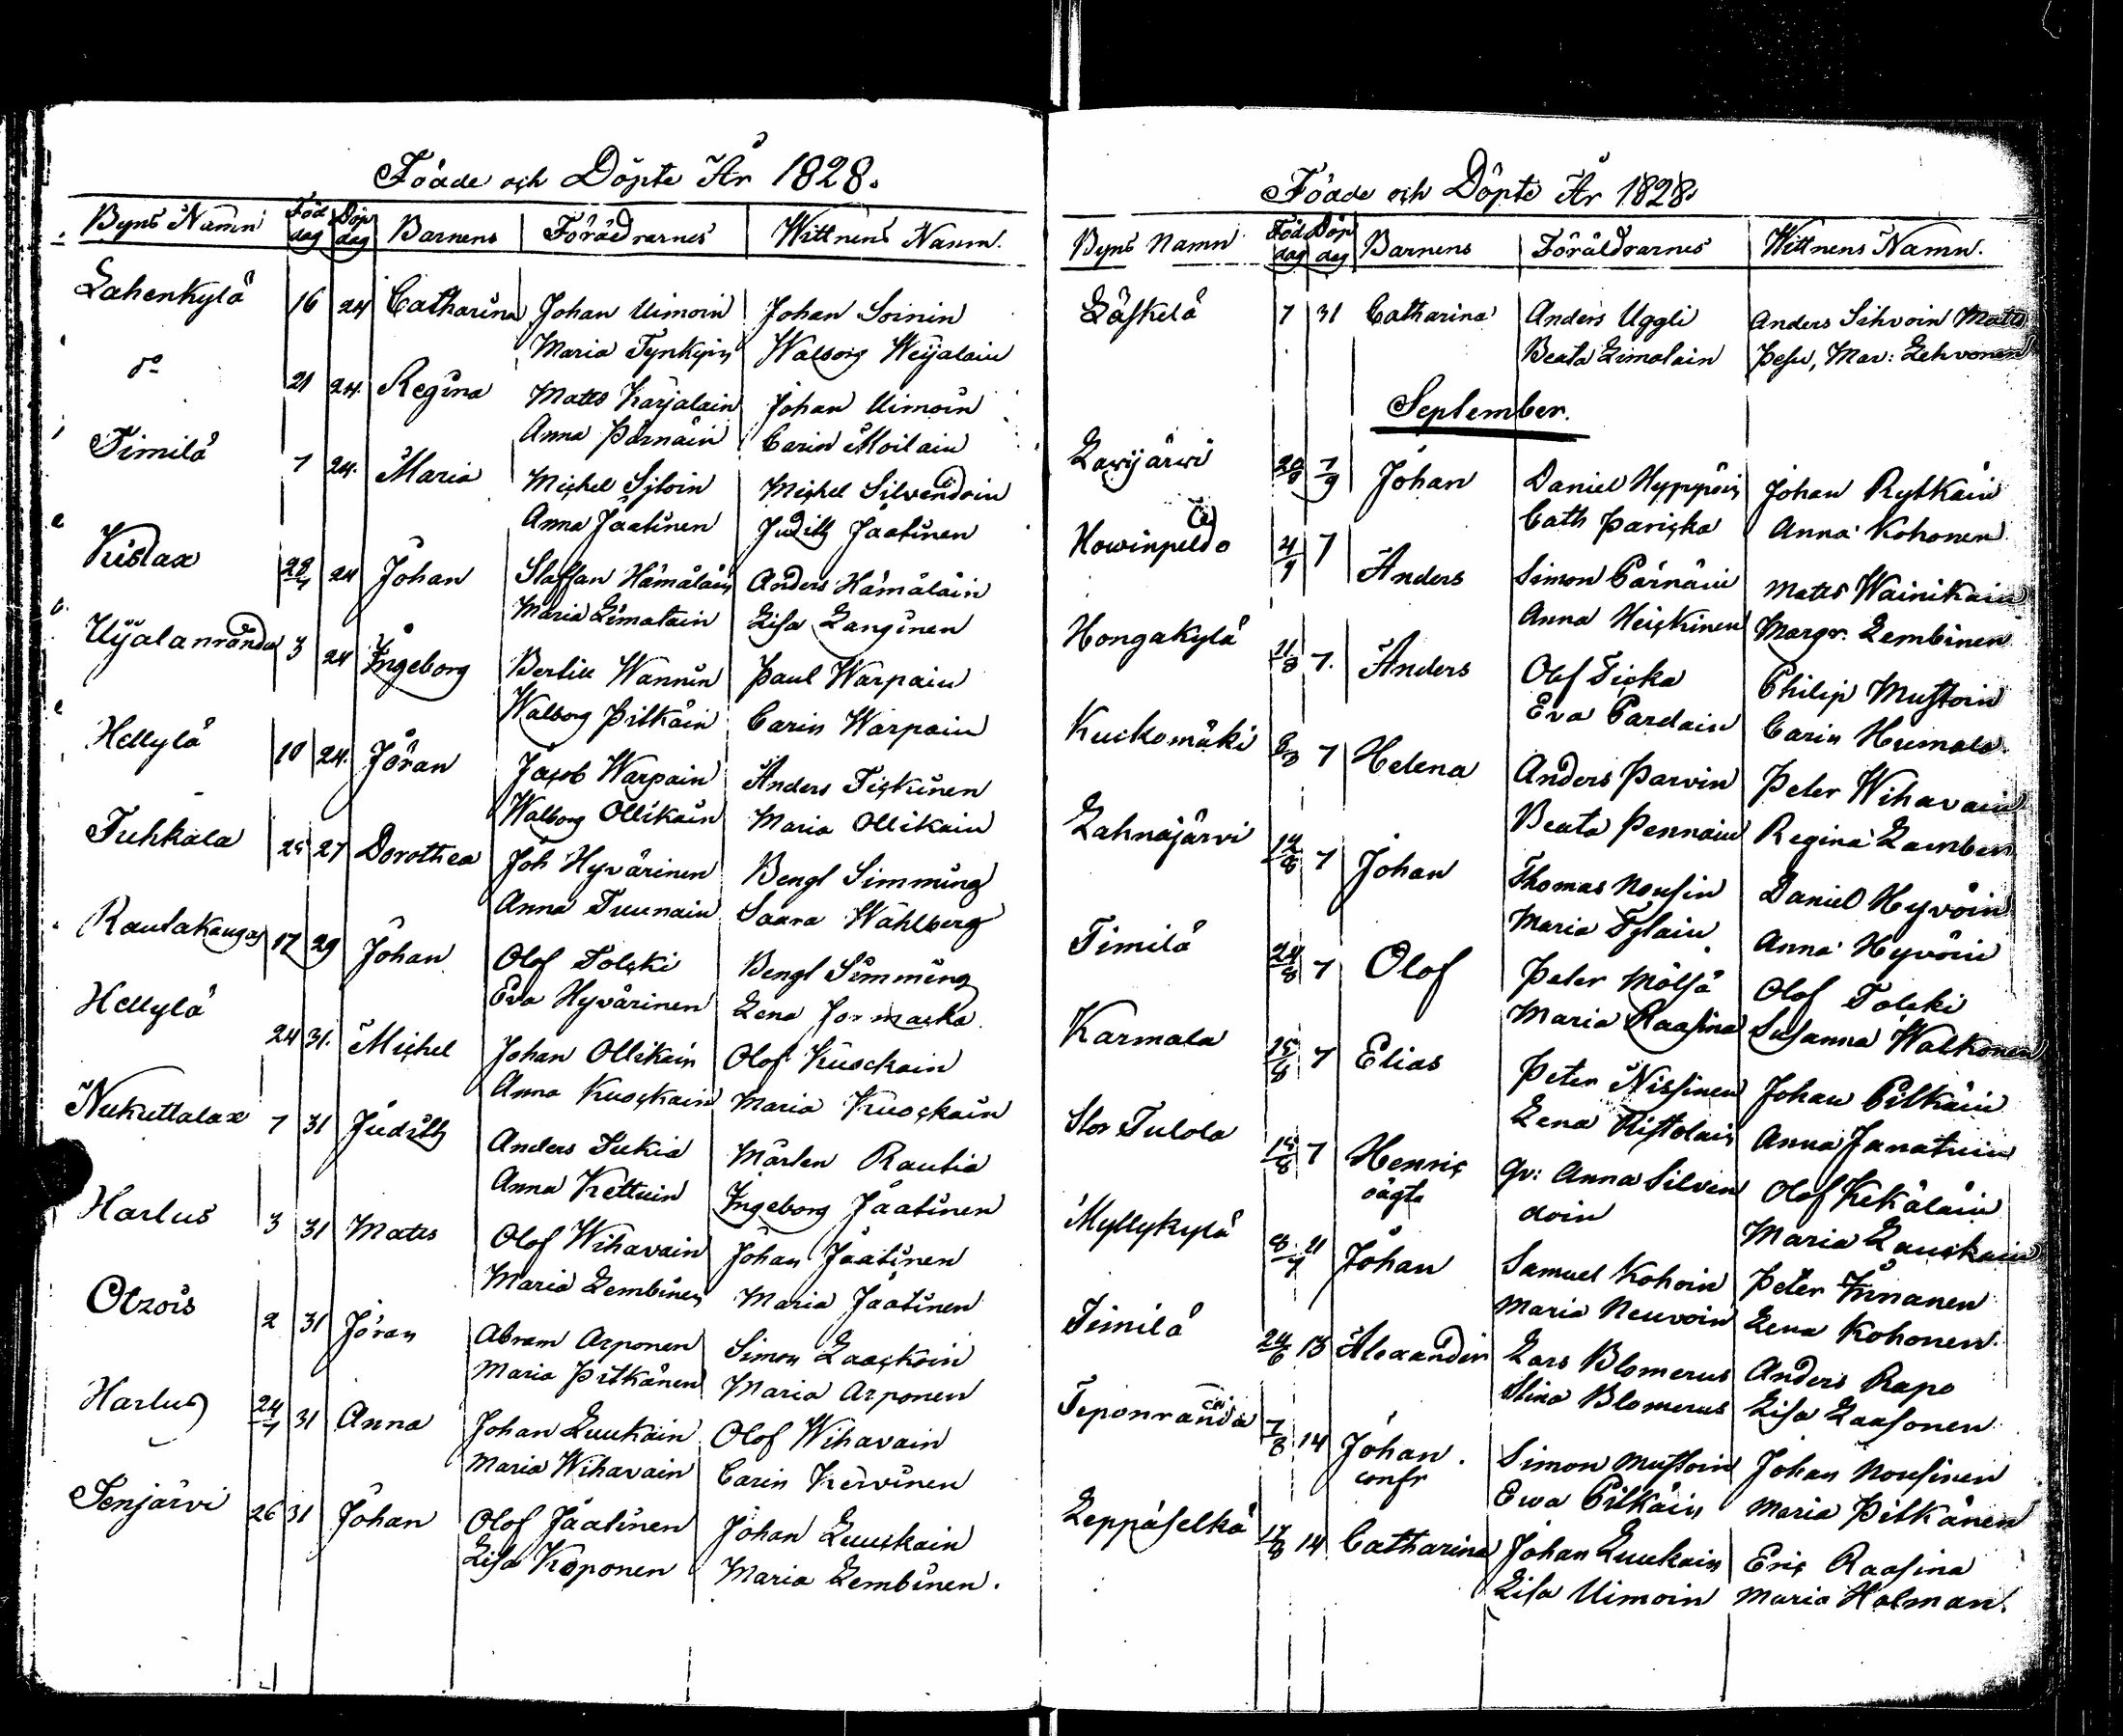 Födde och Döpte År 1828.
Byns Namn Föd dag Döp dag Barnens Föräldrarnes Wittnens Namn.
Lahenkylä 16 24 Catharina Johan Uimoin Johan Soinin
Maria Tynkyin Walborg Weijalain
do 21 24. Regina Matts Karjalain Johan Uimoin
Anna Pärnäin Carin Moilain
Timilä 7 24. Maria Michel Siloin Michel Silvendoin
Anna Jaatinen Judith Jaatinen
Kistax 28/7 24 Johan Staffan Hämäläin Anders Hämäläin
Maria Limatain Lisa Langinen
Uijalanranda 3 24 Ingeborg Bertill Wannin Paul Warpain
Walborg Pitkäin Carin Warpain
Hellylä 10 24. Jöran Jacob Warpain Anders Tickinen
Walborg Ollikain Maria Ollikain
Tuhkala 25 27 Dorothea Joh Hyvärinen Bengt Simming
Anna Tuunain Saara Wahlberg
Rautakangas 17 29 Johan Olof Tolcki Bengt Simming
Eva Hyvärinen Lena Jormacka
Hellylä 24 31. Michel Johan Ollikain Olof Kuockain
Anna Kuockain Maria Kuockain
Nukuttalax 7 31 Judith Anders Sukia Mårten Rautia
Anna Kettuin Ingeborg Jaatinen
Harlus 3 31 Matts Olof Wihavain Johan Jäätinen
Maria Lembinen Maria Jäätinen
Otzois 2 31 Jöran Abram Arponen Simon Laackoin
Maria Pitkänen Maria Arponen
Harlus 24/7 31 Anna Johan Luukain Olof Wihavain
Maria Wihavain Carin Kervinen
Senjärvi 26 31 Johan Olof Jäätinen Johan Luuckain
Lisa Koponen Maria Lembinen.
Födde och Döpte År 1828.
Byns Namn Föd dag Döp dag Barnens Föräldrarnes Wittnens Namn.
Läskelä 7 31 Catharina Anders Uggli Anders Sihvoin Matts
Beata Limatain Pesu, Mar: Lehvonen
September.
Lavijärvi 20/8 7/9 Johan Daniel Hyppöin Johan Rytkäin
Cath Paricka Anna Kohonen
Howinpeldo 4/7 7 Anders Simon Pärnäin Matts Wainikain
Anna Heickinen Margr. Lembinen
Hongakylä 21/8 7. Anders Olof Ticka Philip Mustoin
Eva Pardain Carin Humala
Kuckomäki 8/8 7 Helena Anders Parvin Peter Wihavain
Beata Pennain Regina Lamber
Lahnajärvi 12/8 7 Johan Thomas Nousin Daniel Hyvöin
Maria Tylain Anna Hyvöin
Timilä 24/8 7 Olof Peter Mölsä Olof Tolcki
Maria Raasina Susanna Walkonen
Karmala 25/8 7 Elias Peter Nissinen Johan Pitkäin
Lena Ristolain Anna Janatuin
Stor Tulola 15/8 7 Henric Qv: Anna Silven Olof Kekäläin
oägta doin Maria Lauckain
Myllykylä 8/7 21 Johan Samuel Kohoin Peter Innanen
Maria Neuvoin Lena Kohonen.
Timilä 24/6 13 Alexander Lars Blomerus Anders Rapo
Stina Blomerus Lisa Laasonen
Teponranda 7/8 14 Johan. Simon Mustoin Johan Nousinen
confr Ewa Pitkäin Maria Pitkänen
Leppäselkä 17/8 14 Catharina Johan Luukain Eric Raasina
Lisa Uimoin Maria Holman.